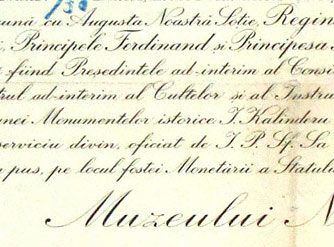 /50
ună cu Augusta Noastră Soţie, Regin
, Principele Ferdinand şi Principesa
fiind Preşedintele ad-interim al Consi
trul ad-interim al Cultelor şi al Instru
nei Monumentelor istorice I. Kalinderu
serviciu divin, oficiat de I. P. Sf. Sa
pus, pe locul fostei Monetării a Statulu
Muzeului N